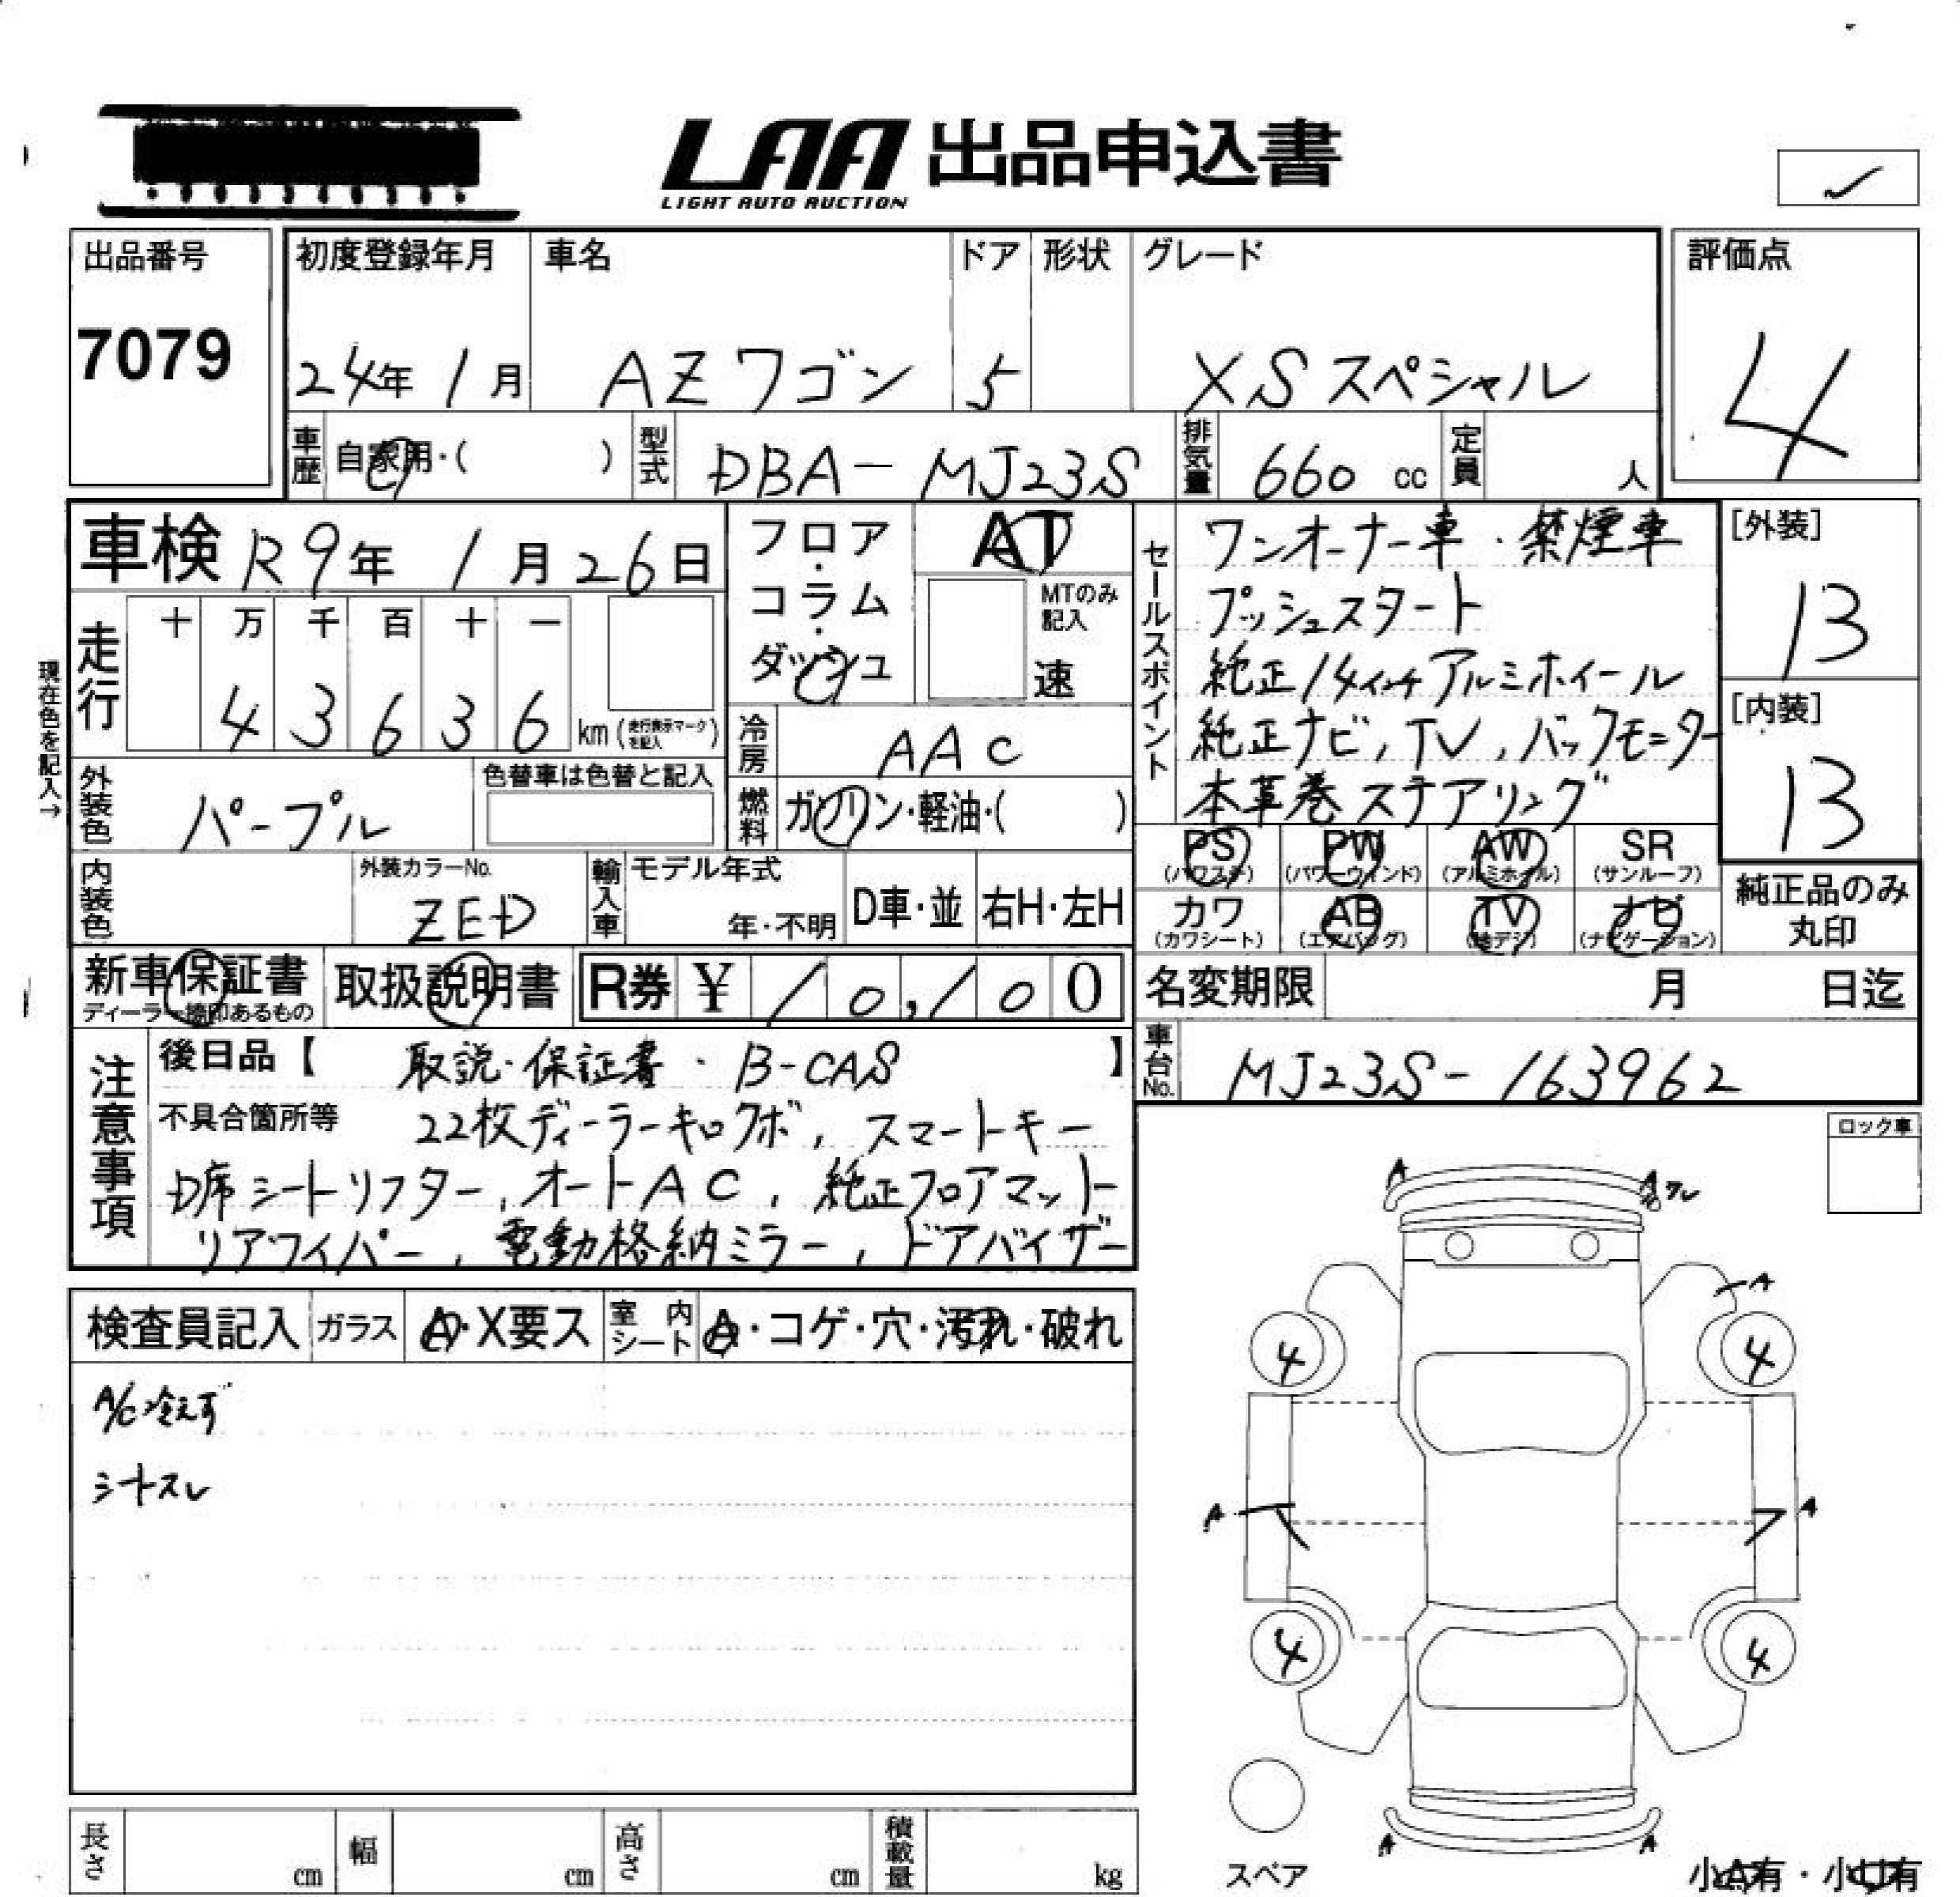 LAA 出品申込書
LIGHT AUTO AUCTION
出品番号
7079
初度登録年月 車名 ドア 形状 グレード
24年 1月 AZワゴン 5 XSスペシャル
評価点
4
車歴 自家用・( ) 型式 DBA-MJ23S 排気量 660 cc 定員 人
車検 R9年 1月 26日
走行 十 万 千 百 十 一
4 3 6 3 6 km (走行表示マークを記入)
現在色を記入→
外装色 パープル 色替車は色替と記入
内装色 外装カラーNo. ZED
輸入車 モデル年式 年・不明 D車・並 右H・左H
フロア・コラム・ダッシュ
AT
MTのみ記入
速
冷房 AAC
燃料 ガソリン・軽油・( )
セールスポイント
ワンオーナー車・禁煙車
プッシュスタート
純正14インチアルミホイール
純正ナビ, TV, バックモニター
本革巻ステアリング
[外装]
13
[内装]
13
PS (パワステ) PW (パワーウインド) AW (アルミホイル) SR (サンルーフ)
カワ (カワシート) AB (エアバッグ) TV (地デジ) ナビ (ナビゲーション)
純正品のみ
丸印
新車保証書 取扱説明書 R券 ¥ 10,100
ディーラー捺印あるもの
名変期限 月 日迄
車台No. MJ23S-163962
注意事項
後日品【 取説・保証書・B-CAS 】
不具合箇所等 22枚ディーラーキロクボ, スマートキー
D席シートリフター, オートAC, 純正フロアマット
リアワイパー, 電動格納ミラー, ドアバイザー
ロック車
検査員記入 ガラス A・X要ス 室内シート A・コゲ・穴・汚れ・破れ
A/C冷えず
シートスレ
A A ワレ
A
4 4
A A
4 4
A A
スペア
小A有・小U有
長さ cm 幅 cm 高さ cm 積載量 kg